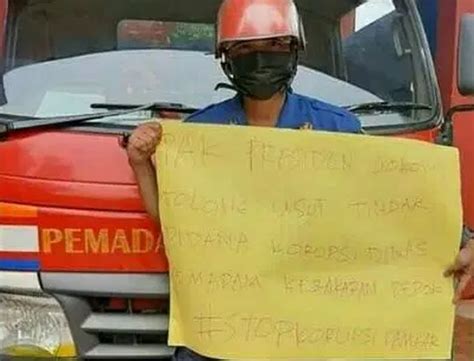 PAK PRESIDEN JOKOWI
TOLONG USUT TINDAK
PEMADA
PIDANA KORUPSI DINAS
PEMADAM KEBAKARAN DEPOK
#STOPKORUPSI DAMKAR